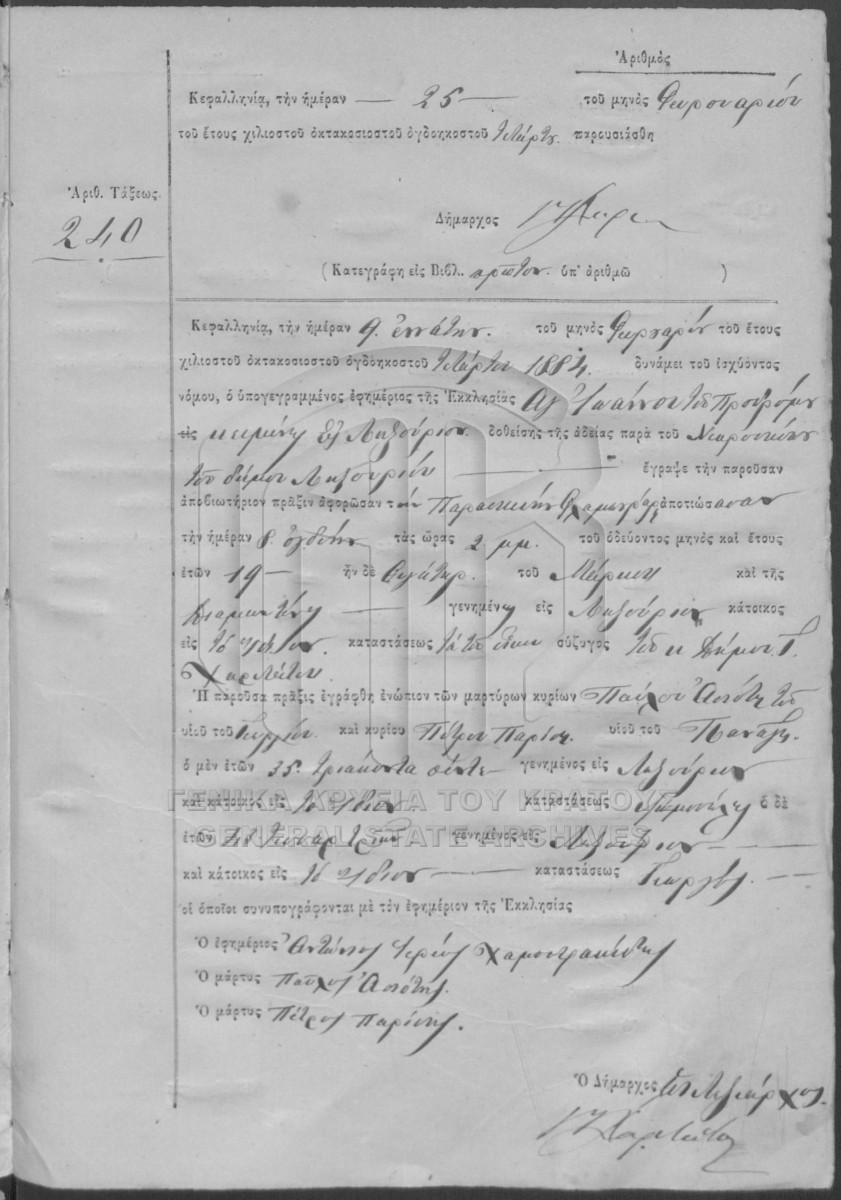 Ἀριθμὸς
Κεφαλληνίᾳ, τὴν ἡμέραν — 25 — τοῦ μηνὸς Φεβρουαρίου
τοῦ ἔτους χιλιοστοῦ ὀκτακοσιοστοῦ ὀγδοηκοστοῦ τετάρτου παρουσιάσθη
Ἀριθ. Τάξεως.
240
Δήμαρχος
(Κατεγράφη εἰς Βιβλ. πρῶτον ὑπ' ἀριθμῶ )
Κεφαλληνίᾳ, τὴν ἡμέραν 9 ἐννάτην. τοῦ μηνὸς Φεβρουαρίου τοῦ ἔτους
χιλιοστοῦ ὀκτακοσιοστοῦ ὀγδοηκοστοῦ τετάρτου 1884. δυνάμει τοῦ ἰσχύοντος
νόμου, ὁ ὑπογεγραμμένος ἐφημέριος τῆς Ἐκκλησίας Ἁγ Ἰωάννου τοῦ Προδρόμου
εἰς κειμένης Ληξούριον. δοθείσης τῆς ἀδείας παρὰ τοῦ
τοῦ δήμου Ληξουρίου — ἔγραψε τὴν παροῦσαν
ἀποβιωτήριον πρᾶξιν ἀφορῶσαν τὴν Παρασκευὴν ἀποτιώσασαν
τὴν ἡμέραν 8 ὀγδόην τὰς ὥρας 2 μμ. τοῦ ὁδεύοντος μηνὸς καὶ ἔτους
ἐτῶν 19 — ἦν δὲ θυγάτηρ. τοῦ Μάρκου καὶ τῆς
Διαμαντίνης — γενημένη εἰς Ληξούριον κάτοικος
εἰς τὸ ἴδιον. καταστάσεως σύζυγος τοῦ κ Δήμου Γ.
Χαρ
Ἡ παροῦσα πρᾶξις ἐγράφθη ἐνώπιον τῶν μαρτύρων κυρίων Παύλου τοῦ
υἱοῦ τοῦ Γεωργίου. καὶ κυρίου Πέτρου Παρίση. υἱοῦ τοῦ Παναγῆ.
ὁ μὲν ἐτῶν 35. τριάκοντα πέντε γενημένος εἰς Ληξούριον
καὶ κάτοικος εἰς τὸ ἴδιον καταστάσεως ὁ δὲ
ἐτῶν γενημένος εἰς Ληξούριον —
καὶ κάτοικος εἰς τὸ ἴδιον — καταστάσεως —
οἱ ὁποῖοι συνυπογράφονται μὲ τὸν ἐφημέριον τῆς Ἐκκλησίας
Ὁ ἐφημέριος Ἀντώνιος Ἱερεὺς
Ὁ μάρτυς Παῦλος
Ὁ μάρτυς Πέτρος Παρίσης.
Ὁ Δήμαρχος Ληξίαρχος.
ΓΕΝΙΚΑ ΑΡΧΕΙΑ ΤΟΥ ΚΡΑΤΟΥΣ
GENERAL STATE ARCHIVES